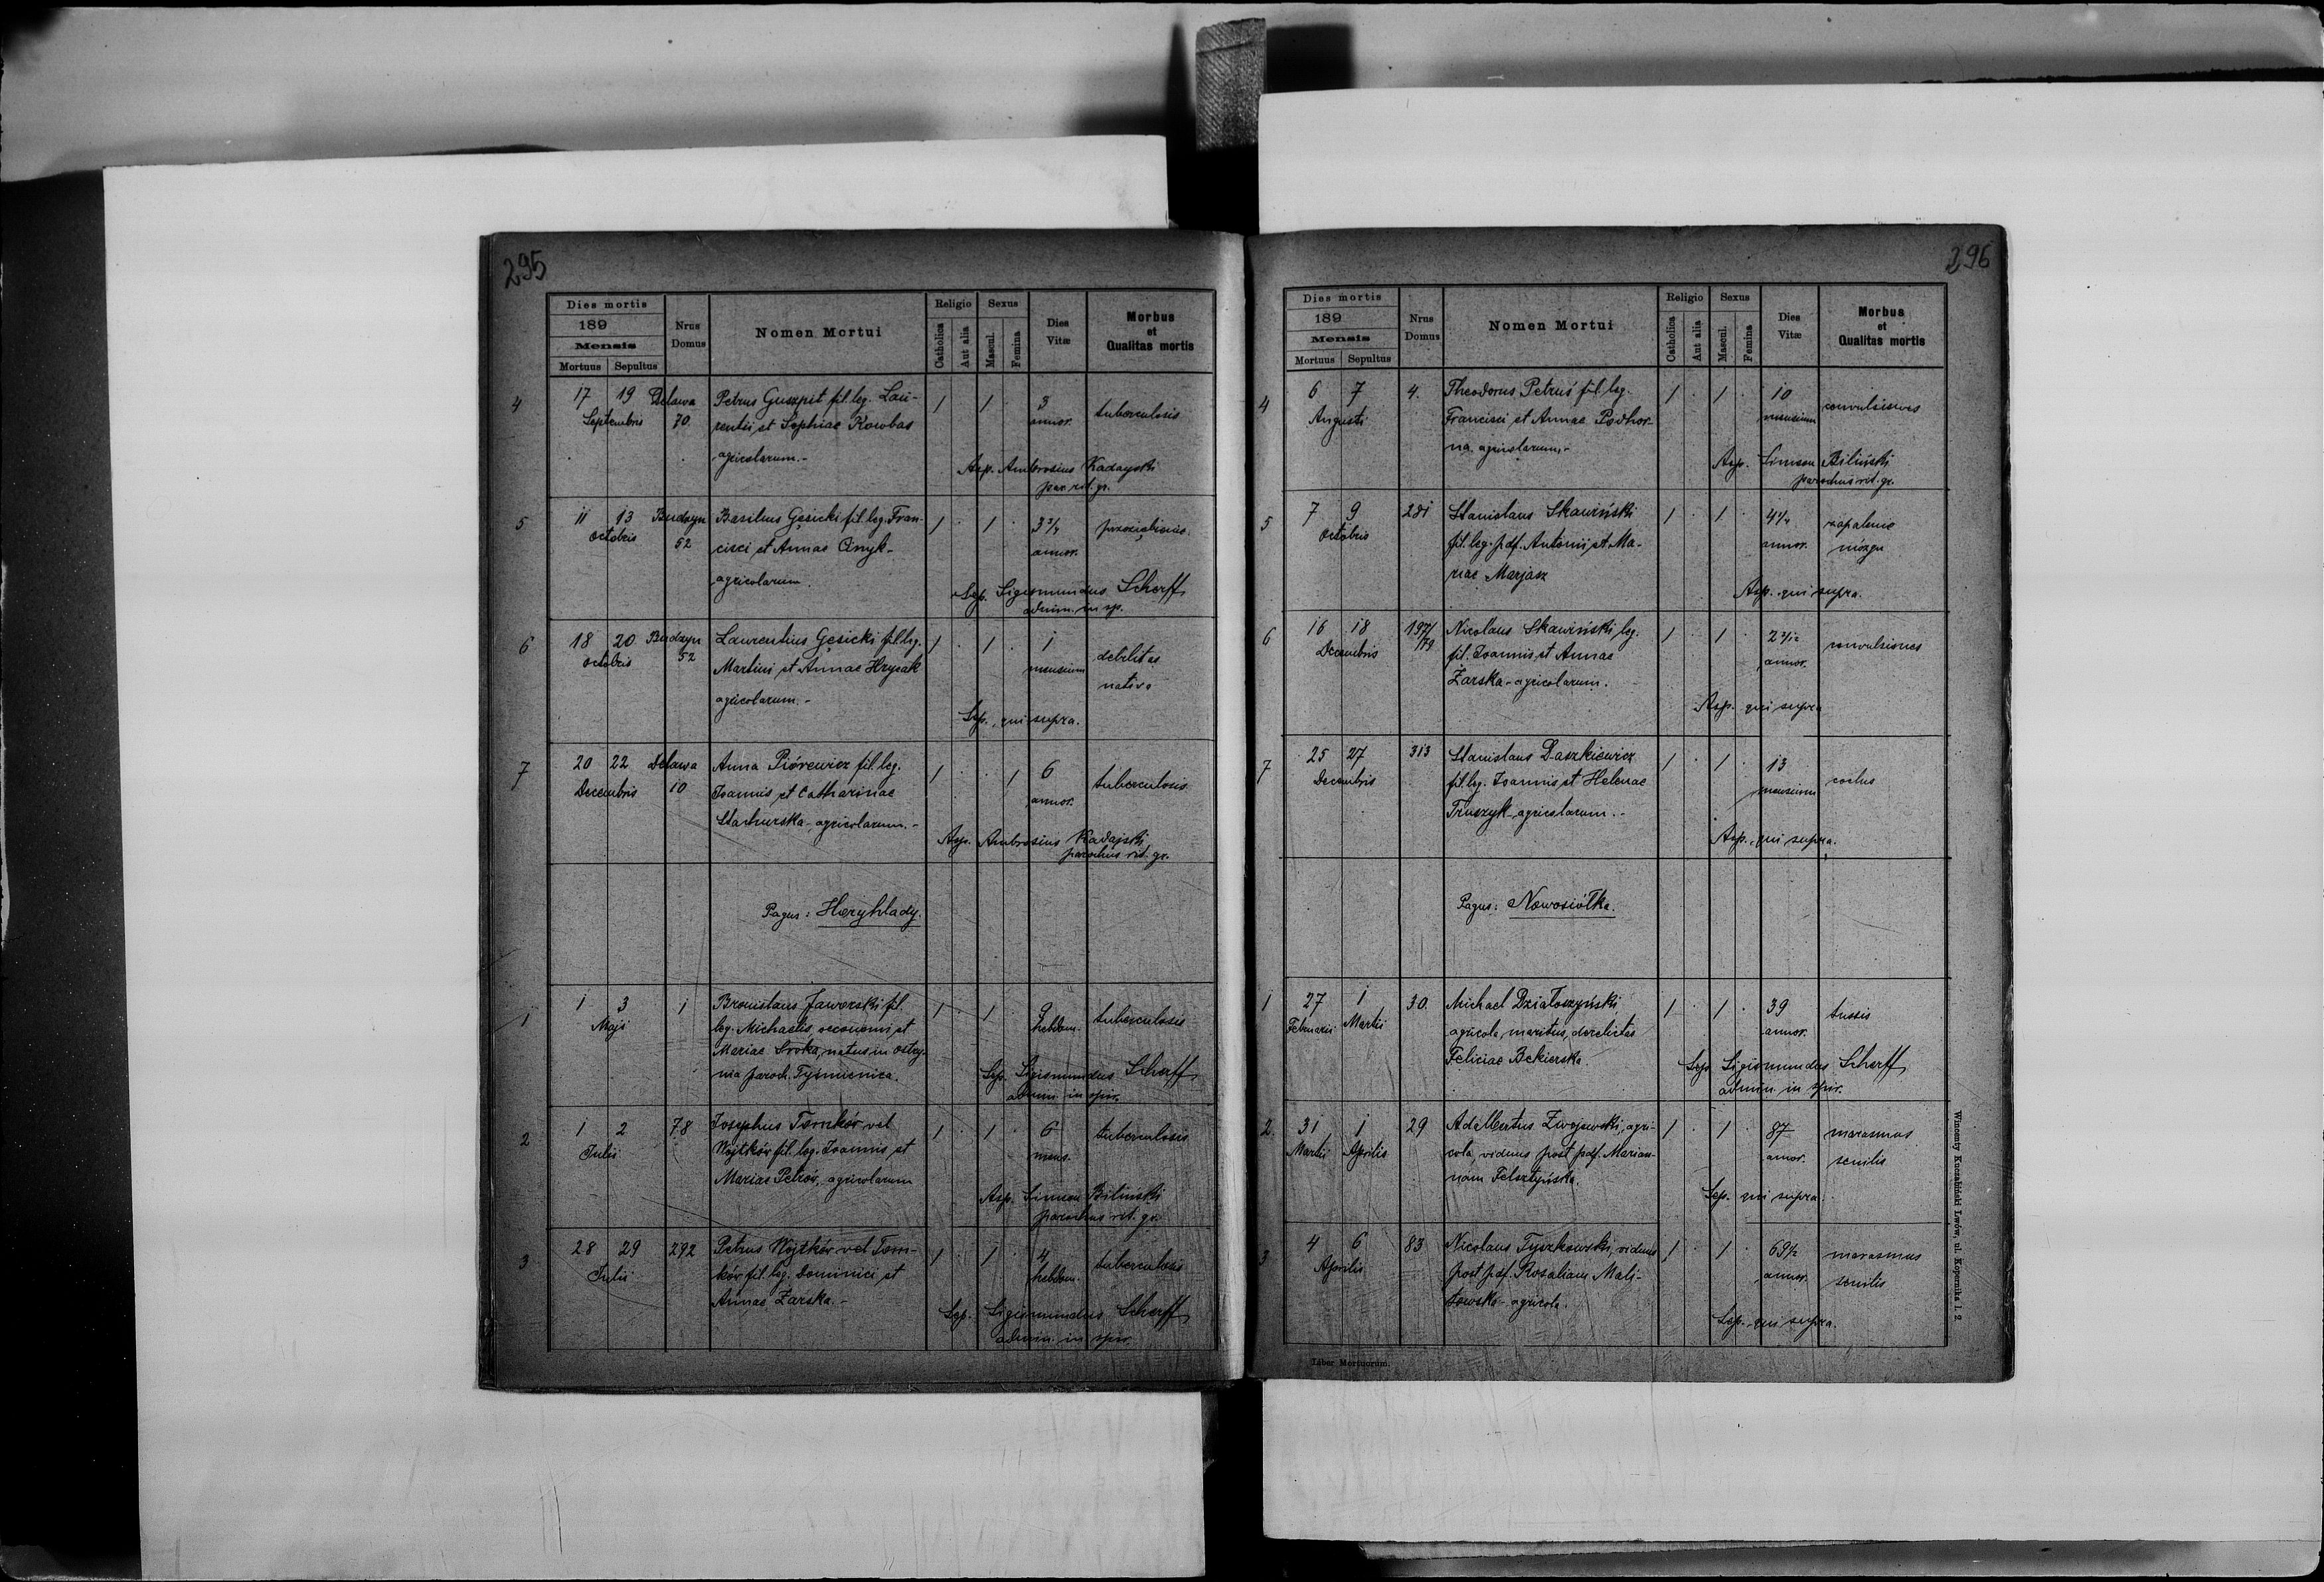 295
Dies mortis
189
Mensis
Mortuus Sepultus
Nrus Domus
Nomen Mortui
Religio
Catholica
Aut alia
Sexus
Mascul.
Femina
Dies Vitæ
Morbus et Qualitas mortis
4 17 19 Delawa Petrus Guszpit fil. leg. Lau- 1 1 3 tuberculosis
Septembris 70 rentii et Sophiae Kowbas annor.
agricolarum.-
Asp. Ambrosius Kadayski
par. rit. gr.
5 11 13 Budzyn Basilius Gęsicki fil. leg. Fran- 1 1 3 3/4
Octobris 52 cisci et Annae annor.
agricolarum.
Sep. Sigismundus Scherff
admin. in sp.
6 18 20 Budzyn Laurentius Gęsicki fil. leg. 1 1 1 debilitas
Octobris 52 Martini et Annae Hrycak mensium nativa
agricolarum.-
Sep. qui supra.
7 20 22 Delawa Anna Piórewicz fil. leg. 1 1 6 tuberculosis
Decembris 10 Joannis et Catharinae annor.
Stachurska, agricolarum.-
Asp. Ambrosius Kadajski
parochus rit. gr.
Pagus: Horyhlady.
1 1 3 1 Bronislaus Jaworski fil. 1 1 9 tuberculosis
Maji leg. Michaelis, oeconomi, et hebdom.
Mariae Sroka, natus in Ostry-
nia paroch. Tyśmienica.
Sep. Sigismundus Scherff
admin. in spir.
2 1 2 78 Josephus Tomków vel 1 1 6 tuberculosis
Julii Wojtków fil. leg. Joannis et mens.
Mariae Petrów, agricolarum
Asp. Simeon Biliński
parochus rit. gr.
3 28 29 292 Petrus Wojtków vel Tom- 1 1 4 tuberculosis
Julii ków fil. leg. Dominici et hebdom.
Annae Żarska.-
Sep. Sigismundus Scherff
admin. in spir.
296
Dies mortis
189
Mensis
Mortuus Sepultus
Nrus Domus
Nomen Mortui
Religio
Catholica
Aut alia
Sexus
Mascul.
Femina
Dies Vitæ
Morbus et Qualitas mortis
4 6 7 4. Theodorus Petruś fil. leg. 1 1 10 convulsiones
Augusti Francisci et Annae Podhor- mensium
na agricolarum.-
Asp. Simeon Biliński
parochus rit. gr.
5 7 9 281 Stanislaus Skawiński 1 1 4 1/4 zapalenie
Octobris fil. leg. pdf. Antonii et Ma- annor. mózgu
riae Marjasz
Asp. qui supra.
6 16 18 197/179 Nicolaus Skawiński, leg. 1 1 2 3/12 convulsiones
Decembris fil. Joannis et Annae annor.
Żarska - agricolarum.
Asp. qui supra
7 25 27 313 Stanislaus Daszkiewicz 1 1 13
Decembris fil. leg. Joannis et Helenae mensium
Truszyk - agricolarum.-
Asp. qui supra.
Pagus: Nowosiółka.
1 27 1 30. Michael Działoszyński, 1 1 39 tussis
Februarii Martii agricola, maritus, derelictae annor.
Feliciae Bekierska
Sep. Sigismundus Scherff
admin. in spir.
2. 31 1 29 Adalbertus Zwojewski, agri- 1 1 87 marasmus
Martii Aprilis cola, viduus post pdf. Marian- annor. senilis
nam Felsztyńska.
Sep. qui supra.
3 4 6 83 Nicolaus Tyszkowski, viduus 1 1 69 1/2 marasmus
Aprilis post pdf. Rosaliam Mali- annor. senilis
towska - agricola.
Sep. qui supra.
Liber Mortuorum.
Wincenty Kuczabiński Lwów, ul. Kopernika l. 2.